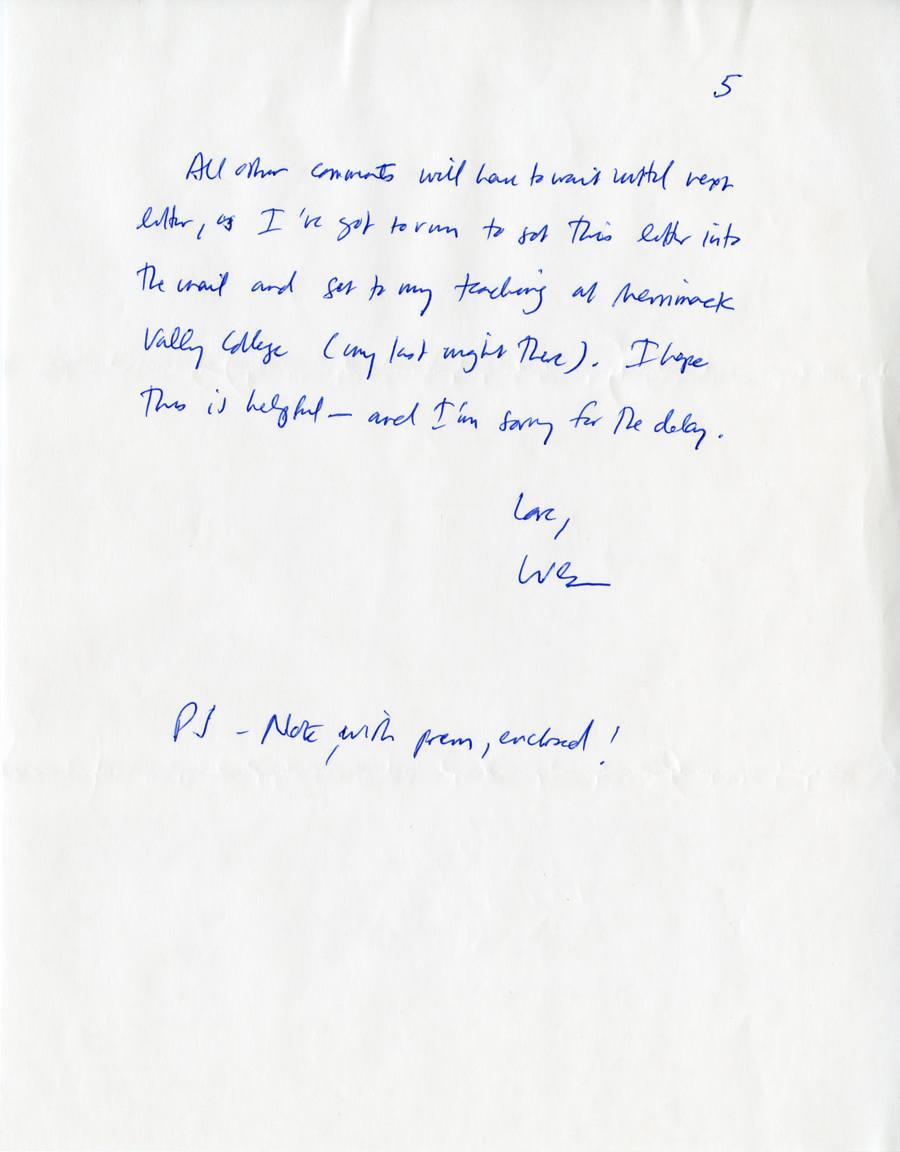 5
All other comments will have to wait until next
letter, as I've got to run to get this letter into
the mail and get to my teaching at Merrimack
Vally College (my last night there). I hope
this is helpful — and I'm sorry for the delay.
Love,
Wes
PS - Note, with poem, enclosed!